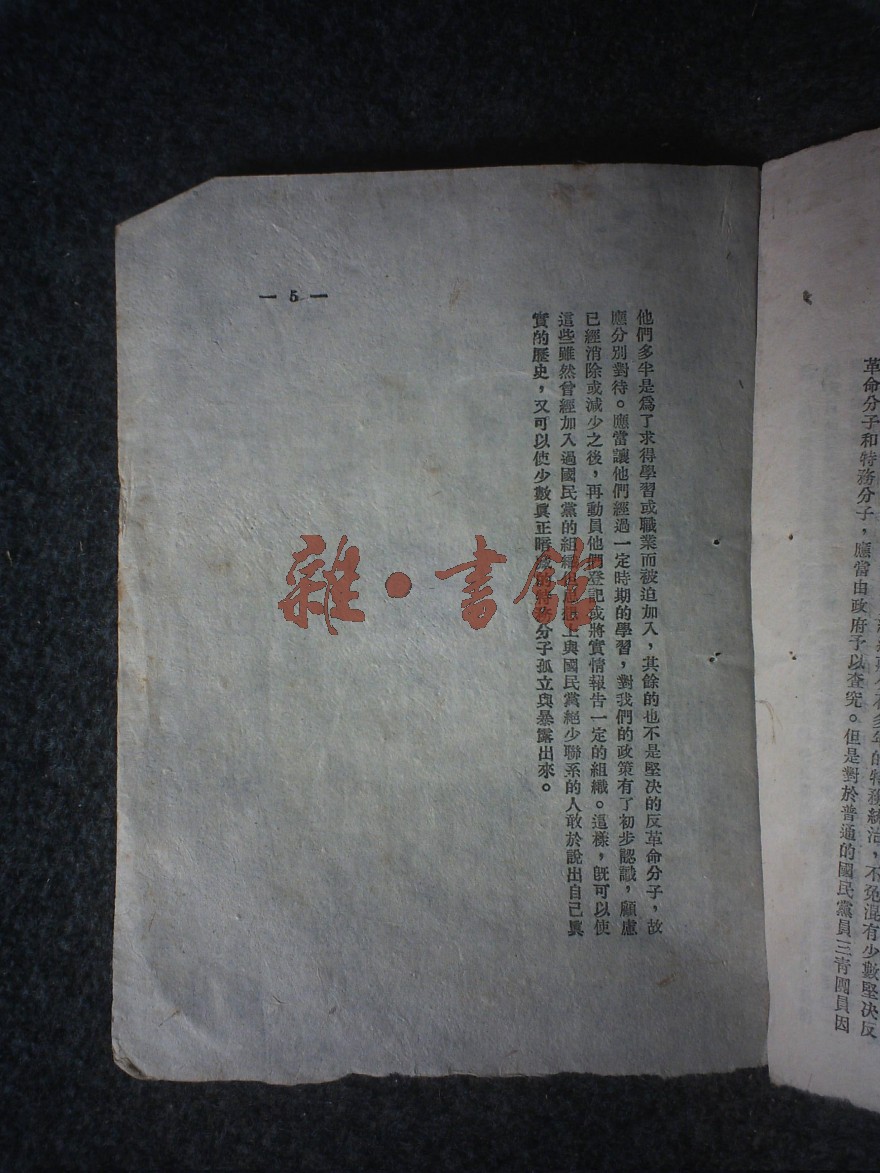 不免混有少數堅決反
革命分子和特務分子，應當由政府予以查究。但是對於普通的國民黨員三青團員因
他們多半是爲了求得學習或職業而被迫加入，其餘的也不是堅决的反革命分子，故
應分別對待。應當讓他們經過一定時期的學習，對我們的政策有了初步認識，顧慮
已經消除或減少之後，再動員他們登記或將實情報告一定的組織。這樣，旣可以使
這些雖然曾經加入過國民黨的組織但思想上與國民黨絕少聯系的人敢於說出自己眞
實的歷史，又可以使少數眞正的特務分子孤立與暴露出來。
— 5 —
雜·書館